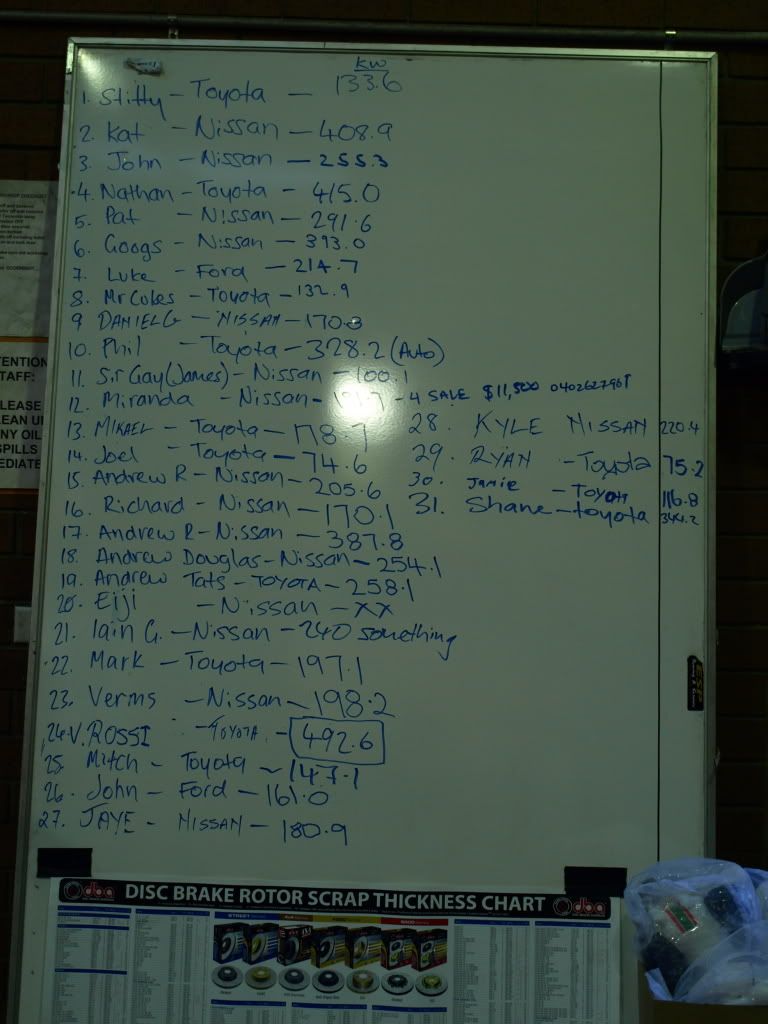 KW
1. Stifty - Toyota - 133.6
2. Kat - Nissan - 408.9
3. John - Nissan - 255.3
4. Nathan - Toyota - 415.0
5. Pat - Nissan - 291.6
6. Googs - Nissan - 393.0
7. Luke - Ford - 214.7
8. Mr Cukes - Toyota - 132.9
9 DANIEL G - NISSAN - 170.3
10. Phil - Toyota - 328.2 (Auto)
11. Sir Gay (James) - Nissan - 100.1
12. Miranda - Nissan - 4 SALE $11,500
13. MIKAEL - Toyota - 178.7
14. Joel - Toyota - 74.6
15. Andrew R - Nissan - 205.6
16. Richard - Nissan - 170.1
17. Andrew R - Nissan - 387.8
18. Andrew Douglas - Nissan - 254.1
19. Andrew Tats - TOYOTA - 258.1
20. Eiji - Nissan - XX
21. Iain G. - Nissan - 240 something
22. Mark - Toyota - 197.1
23. Verms - Nissan - 198.2
24. V. ROSSI - TOYOTA - 492.6
25. Mitch - Toyota - 147.1
26. John - Ford - 161.0
27. JAYE - NISSAN - 180.9
28. KYLE NISSAN 220.4
29. RYAN - Toyota 75.2
30. Jamie - Toyota 116.8
31. Shane - toyota 344.2
TAFF:
dba DISC BRAKE ROTOR SCRAP THICKNESS CHART dba